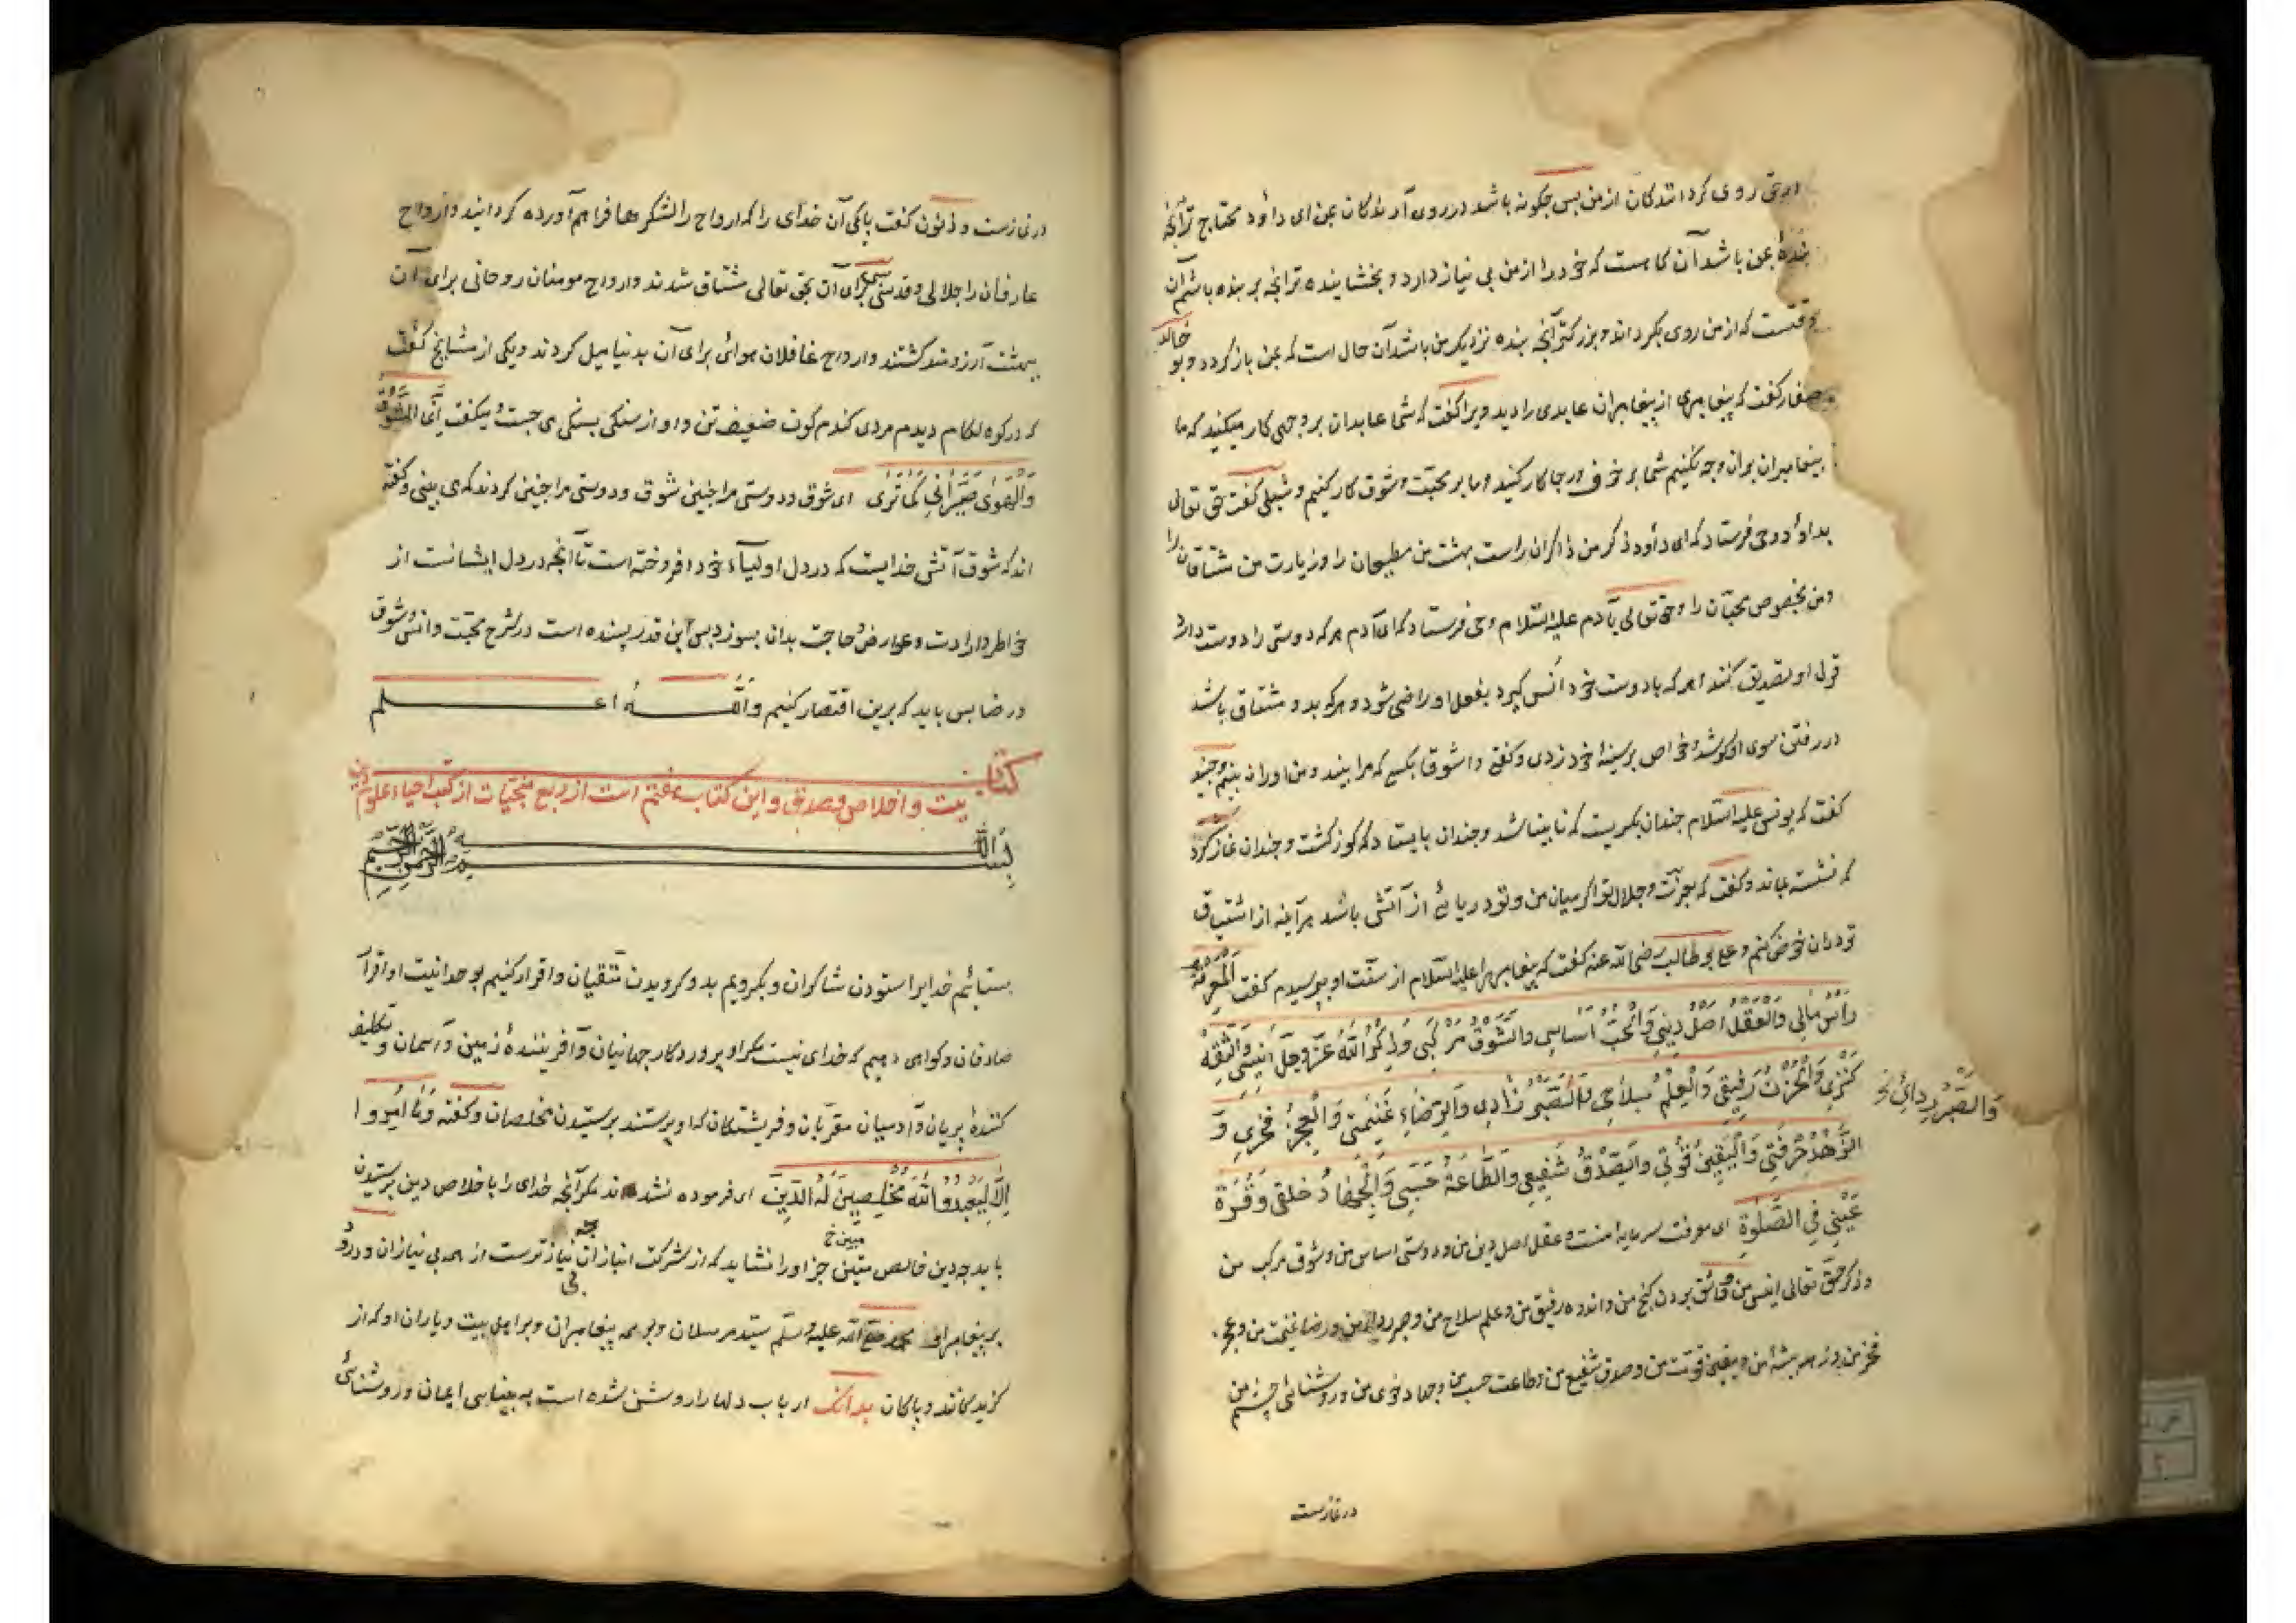 روی کردانندکان از من بس چکونه باشد در روی آرندکان بمن ای داود محتاج ترآنچه
بندهٔ بمن باشد آن کاهست که خود را از من بی نیاز دارد و بخشاینده ترآنچه بر بنده باشم آن
وقتست که از من روی بکرداند و بزرکترآنچه بنده نزدیک من باشد آن حال است که بمن باز کردد وبو خالد
صفار کفت که پیغامبری از پیغامبران عابدی را دید ویرا کفت که شما عابدان بر وجهی کار میکنید که ما
پیغامبران بران وجه نکنیم شما بر خوف و رجا کار کنید وما بر محبت و شوق کار کنیم و شبلی کفت حق تعالی
بداود وحی فرستاد که ای داود ذکر من ذاکران راست بهشت من مطیعان را وزیارت من مشتاقان را
ومن بخصوص محبان را وحق تعالی بآدم علیه السلام وحی فرستاد که ای آدم هر که دوستی را دوست دارد
قول او تصدیق کند هر که با دوست خود انس کیرد بفعل او راضی شود و هر که بدو مشتاق باشد
در رفتن سوی او کوشد و خواص بر سینهٔ خود زدی وکفتی واشوقا بکسی که مرا بیند ومن اورا نه بینم وجنید
کفت که یونس علیه السلام چندان بکریست که نابینا شد و چندان بایستاد که کوز کشت و چندان نماز کرد
که نشسته بماند وکفت که بعزت و جلال تو اکر میان من و تو دریائی از آتش باشد هرآینه از اشتیاق
تو دران خوض کنم وعلی بو طالب رضی الله عنه کفت که پیغامبر را علیه السلام از سنت او بپرسیدم کفت اَلْمَعْرِفَةُ
رَأْسُ مَالِي وَالْعَقْلُ اَصْلُ دِينِي وَالْحُبُّ اَسَاسِي وَالشَّوْقُ مَرْكَبِي وَذِكْرُ اللّٰهِ عَزَّ وَجَلَّ اَنِيسِي وَالثِّقَةُ
كَنْزِي وَالْحُزْنُ رَفِيقِي وَالْعِلْمُ سِلَاحِي وَالصَّبْرُ زَادِي وَالرِّضَاءُ غَنِيمَتِي وَالْعَجْزُ فَخْرِي وَ
وَالصَّبْرُ رِدَائِي خ
الزُّهْدُ حِرْفَتِي وَالْيَقِينُ قُوَّتِي وَالصِّدْقُ شَفِيعِي وَالطَّاعَةُ حَسَبِي وَالْجِهَادُ خُلُقِي وَقُرَّةُ
عَيْنِي فِي الصَّلٰوةِ ای معرفت سرمایهٔ منست وعقل اصل دین من ودوستی اساس من وشوق مرکب من
وذکر حق تعالی انیس من وواثق بودن کنج من واندوه رفیق من وعلم سلاح من وصبر ردای من ورضا غنیمت من وعجز
فخر من وزهد پیشهٔ من ویقین قوت من وصدق شفیع من وطاعت حسب من وجهاد خوی من وروشنائی چشم من
در نمازست
در نمازست وذو النون کفت پاکی آن خدای را که ارواح را لشکرها فراهم آورده کردانید وارواح
عارفان را جلالی وقدسی برای آن بحق تعالی مشتاق شدند وارواح مومنان روحانی برای آن
ببهشت آرزومند کشتند وارواح غافلان هوائی برای آن بدنیا میل کردند ویکی از مشایخ کفت
که در کوه لکام دیدم مردی کندم کون ضعیف تن واو از سنکی بسنکی می جست ومیکفت اَيِ الشَّوْقُ
وَالْهَوٰى صَيَّرَانِي كَمَا تَرٰى ای شوق ودوستی مرا چنین شوق ودوستی مرا چنین کردند که می بینی وکفته
اند که شوق آتش خدایست که در دل اولیاء خود افروخته است تا آنچه در دل ایشانست از
خواطر وارادت وعوارض وحاجت بدان بسوزد بس این قدر پسنده است در شرح محبت وانس وشوق
ورضا بس باید که برین اقتصار کنیم وَاللّٰهُ اعلم
کتاب
نیت واخلاص وصدق واین کتاب هفتم است از ربع منجیات از کتب احیاء علوم دین
بِسْمِ اللّٰهِ الرَّحْمٰنِ الرَّحِيمِ
بستائیم خدایرا ستودن شاکران وبکرویم بدو کرویدن متقیان واقرار کنیم بوحدانیت او اقرار
صادقان وکواهی دهیم که خدای نیست مکر او پروردکار جهانیان وآفرینندهٔ زمین وآسمان وتکلیف
کنندهٔ پریان وآدمیان مقربان وفریشتکان که او پرستند پرستیدن مخلصان وکفته وَمَا اُمِرُوا
اِلَّا لِيَعْبُدُوا اللّٰهَ مُخْلِصِينَ لَهُ الدِّينَ ای فرموده نشده اند مکر آنچه خدای را باخلاص دین پرستیدن
مبین خ
باید چه دین خالص متین جز او را نشاید که از شرکت انبازان بی نیازترست از همه بی نیازان ودرود
بر پیغامبر او محمد صلی الله علیه وسلم سید مرسلان وبر همه پیغامبران وبر اهل بیت ویاران او که از
کزیدکانند وپاکان بدانک ارباب دلها را روشن شده است به بینایی ایمان وروشنائی